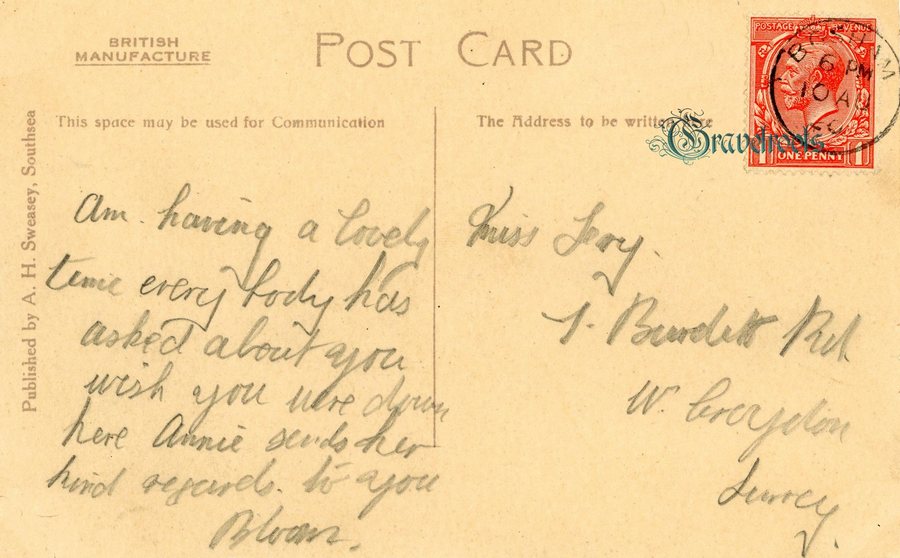 BRITISH
MANUFACTURE
POST CARD
This space may be used for Communication
The Address to be
Published by A. H. Sweasey, Southsea
POSTAGE REVENUE
ONE PENNY
6 PM
10 A
am having a lovely
time every body has
asked about you
wish you were down
here Annie sends her
kind regards to you
Miss
1. Burdett Rd
W. Croydon
Surrey